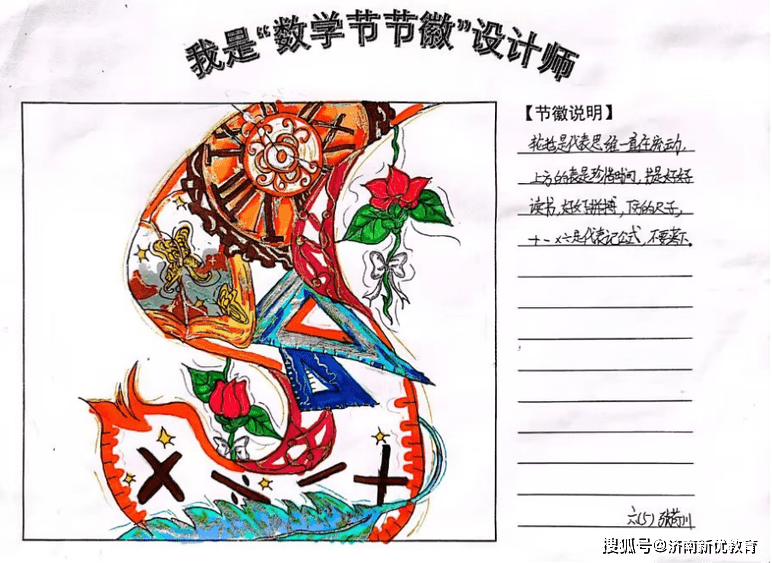 我是“数学节节徽”设计师
【节徽说明】
轮齿是代表思维一直在流动,
上方的表是珍惜时间,书是好好
读书,好好拼搏,下方的尺子,
十一×六是代表记公式,不要丢下。
× ÷ − +
六(5)
搜狐号@济南新优教育